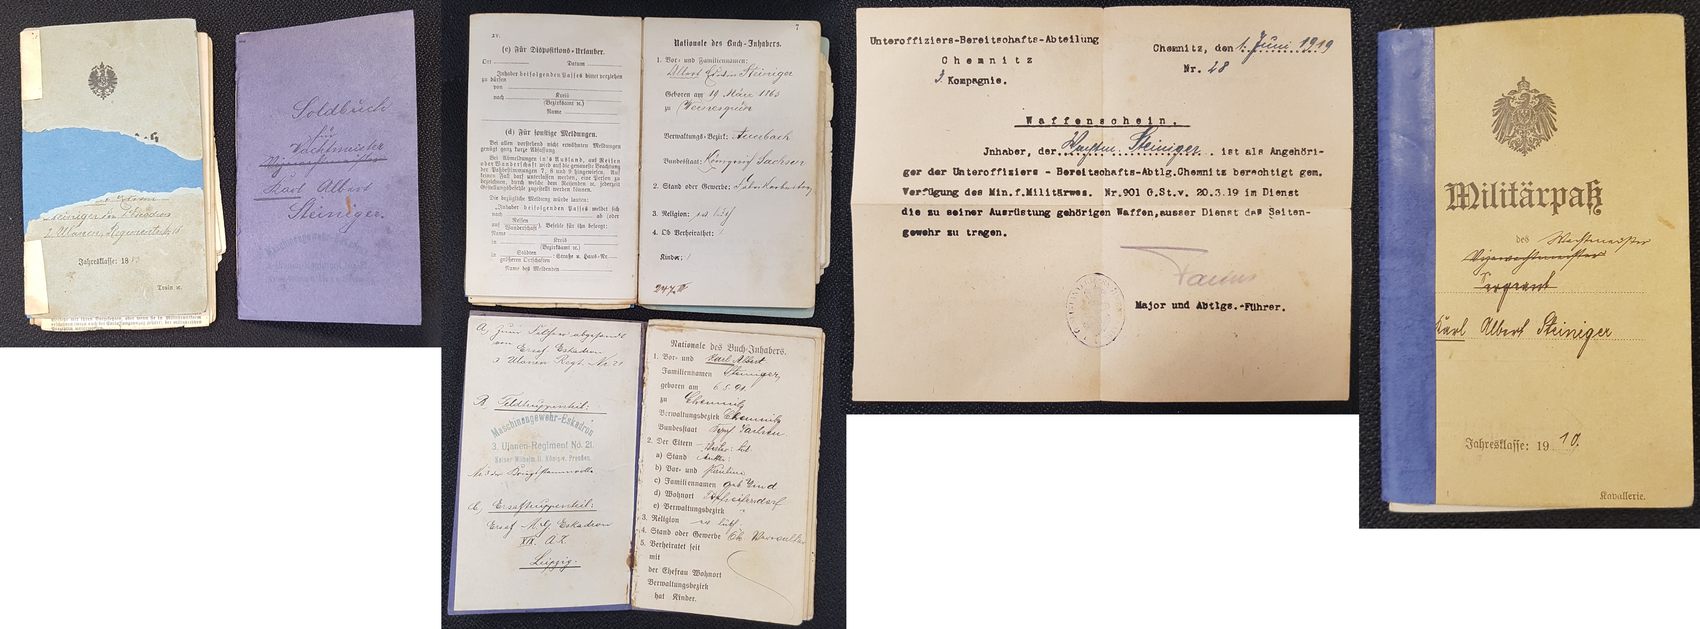 Steiniger
2. Ulanen-Regiment 18
Jahresklasse: 18
Train ɾc.
Soldbuch
für
Wachtmeister
Vizewachtmeister
Karl Albert
Steiniger.
(c) Für Dispositions-Urlauber.
Ort Datum
Inhaber beifolgenden Passes bittet verziehen
zu dürfen
von
nach Kreis
(Bezirksamt ɾc.)
Name
(d) Für sonstige Meldungen.
Bei allen vorstehend nicht erwähnten Meldungen
genügt ganz kurze Abfassung.
Bei Abmeldungen in's Ausland, auf Reisen
oder Wanderschaft wird auf die genaueste Beachtung
der Paßbestimmungen 7, 8 und 9 hingewiesen. Auf
keinen Fall darf unterlassen werden, eine Person zu
bezeichnen, durch welche dem Reisenden ɾc. jederzeit
Gestellungsbefehle zugestellt werden können.
Die bezügliche Meldung würde lauten:
"Inhaber beifolgenden Passes meldet sich
nach ab (oder
auf Reisen
Wanderschaft). Befehle für ihn besorgt:
Name
in Kreis
(Bezirksamt ɾc.)
in Städten
größeren Ortschaften: Straße u. Haus-Nr.
Name des Meldenden
7
Nationale des Buch-Inhabers.
1. Vor- und Familiennamen:
Albert Edwin Steiniger
Geboren am 19. März 1863
zu Wernesgrün
Verwaltungs-Bezirk: Auerbach
Bundesstaat: Königreich Sachsen
2. Stand oder Gewerbe:
3. Religion: ev. luth
4. Ob Verheirathet:
Kinder:
247.III
A, zum Feldheer abgesandt
von Ersatz Eskadron
3. Ulanen Regt. Nr. 21
B. Feldtruppenteil:
Maschinengewehr-Eskadron
3. Ulanen-Regiment No. 21.
Kaiser Wilhelm II. König v. Preußen.
Nr. 3 der Kriegsstammrolle
C, Ersatztruppenteil:
Ersatz M.G. Eskadron
XIX. A.K.
Leipzig.
Nationale des Buch-Inhabers.
1. Vor- und Karl Albert
Familiennamen Steiniger,
geboren am 6.5.91.
zu Chemnitz
Verwaltungsbezirk Chemnitz
Bundesstaat Kgr. Sachsen
2. Der Eltern
a) Stand
b) Vor- und Pauline
c) Familiennamen geb.
d) Wohnort
e) Verwaltungsbezirk
3. Religion ev. luth
4. Stand oder Gewerbe
5. Verheiratet seit
mit
der Ehefrau Wohnort
Verwaltungsbezirk
hat Kinder.
Unteroffiziers-Bereitschafts-Abteilung
Chemnitz
3. Kompagnie.
Chemnitz, den 1. Juni 1919
Nr. 28
Waffenschein.
Jnhaber, der Wachtm. Steiniger ist als Angehöri-
ger der Unteroffiziers - Bereitschafts-Abtlg.Chemnitz berechtigt gem.
Verfügung des Min.f.Militärwes. Nr.901 G.St.v. 20.3.19 im Dienst
die zu seiner Ausrüstung gehörigen Waffen,ausser Dienst das Seiten-
gewehr zu tragen.
Major und Abtlgs.-Führer.
Militärpaß
des Wachtmeister
Vizewachtmeister
Sergeant
Karl Albert Steiniger
Jahresklasse: 1910.
Kavallerie.